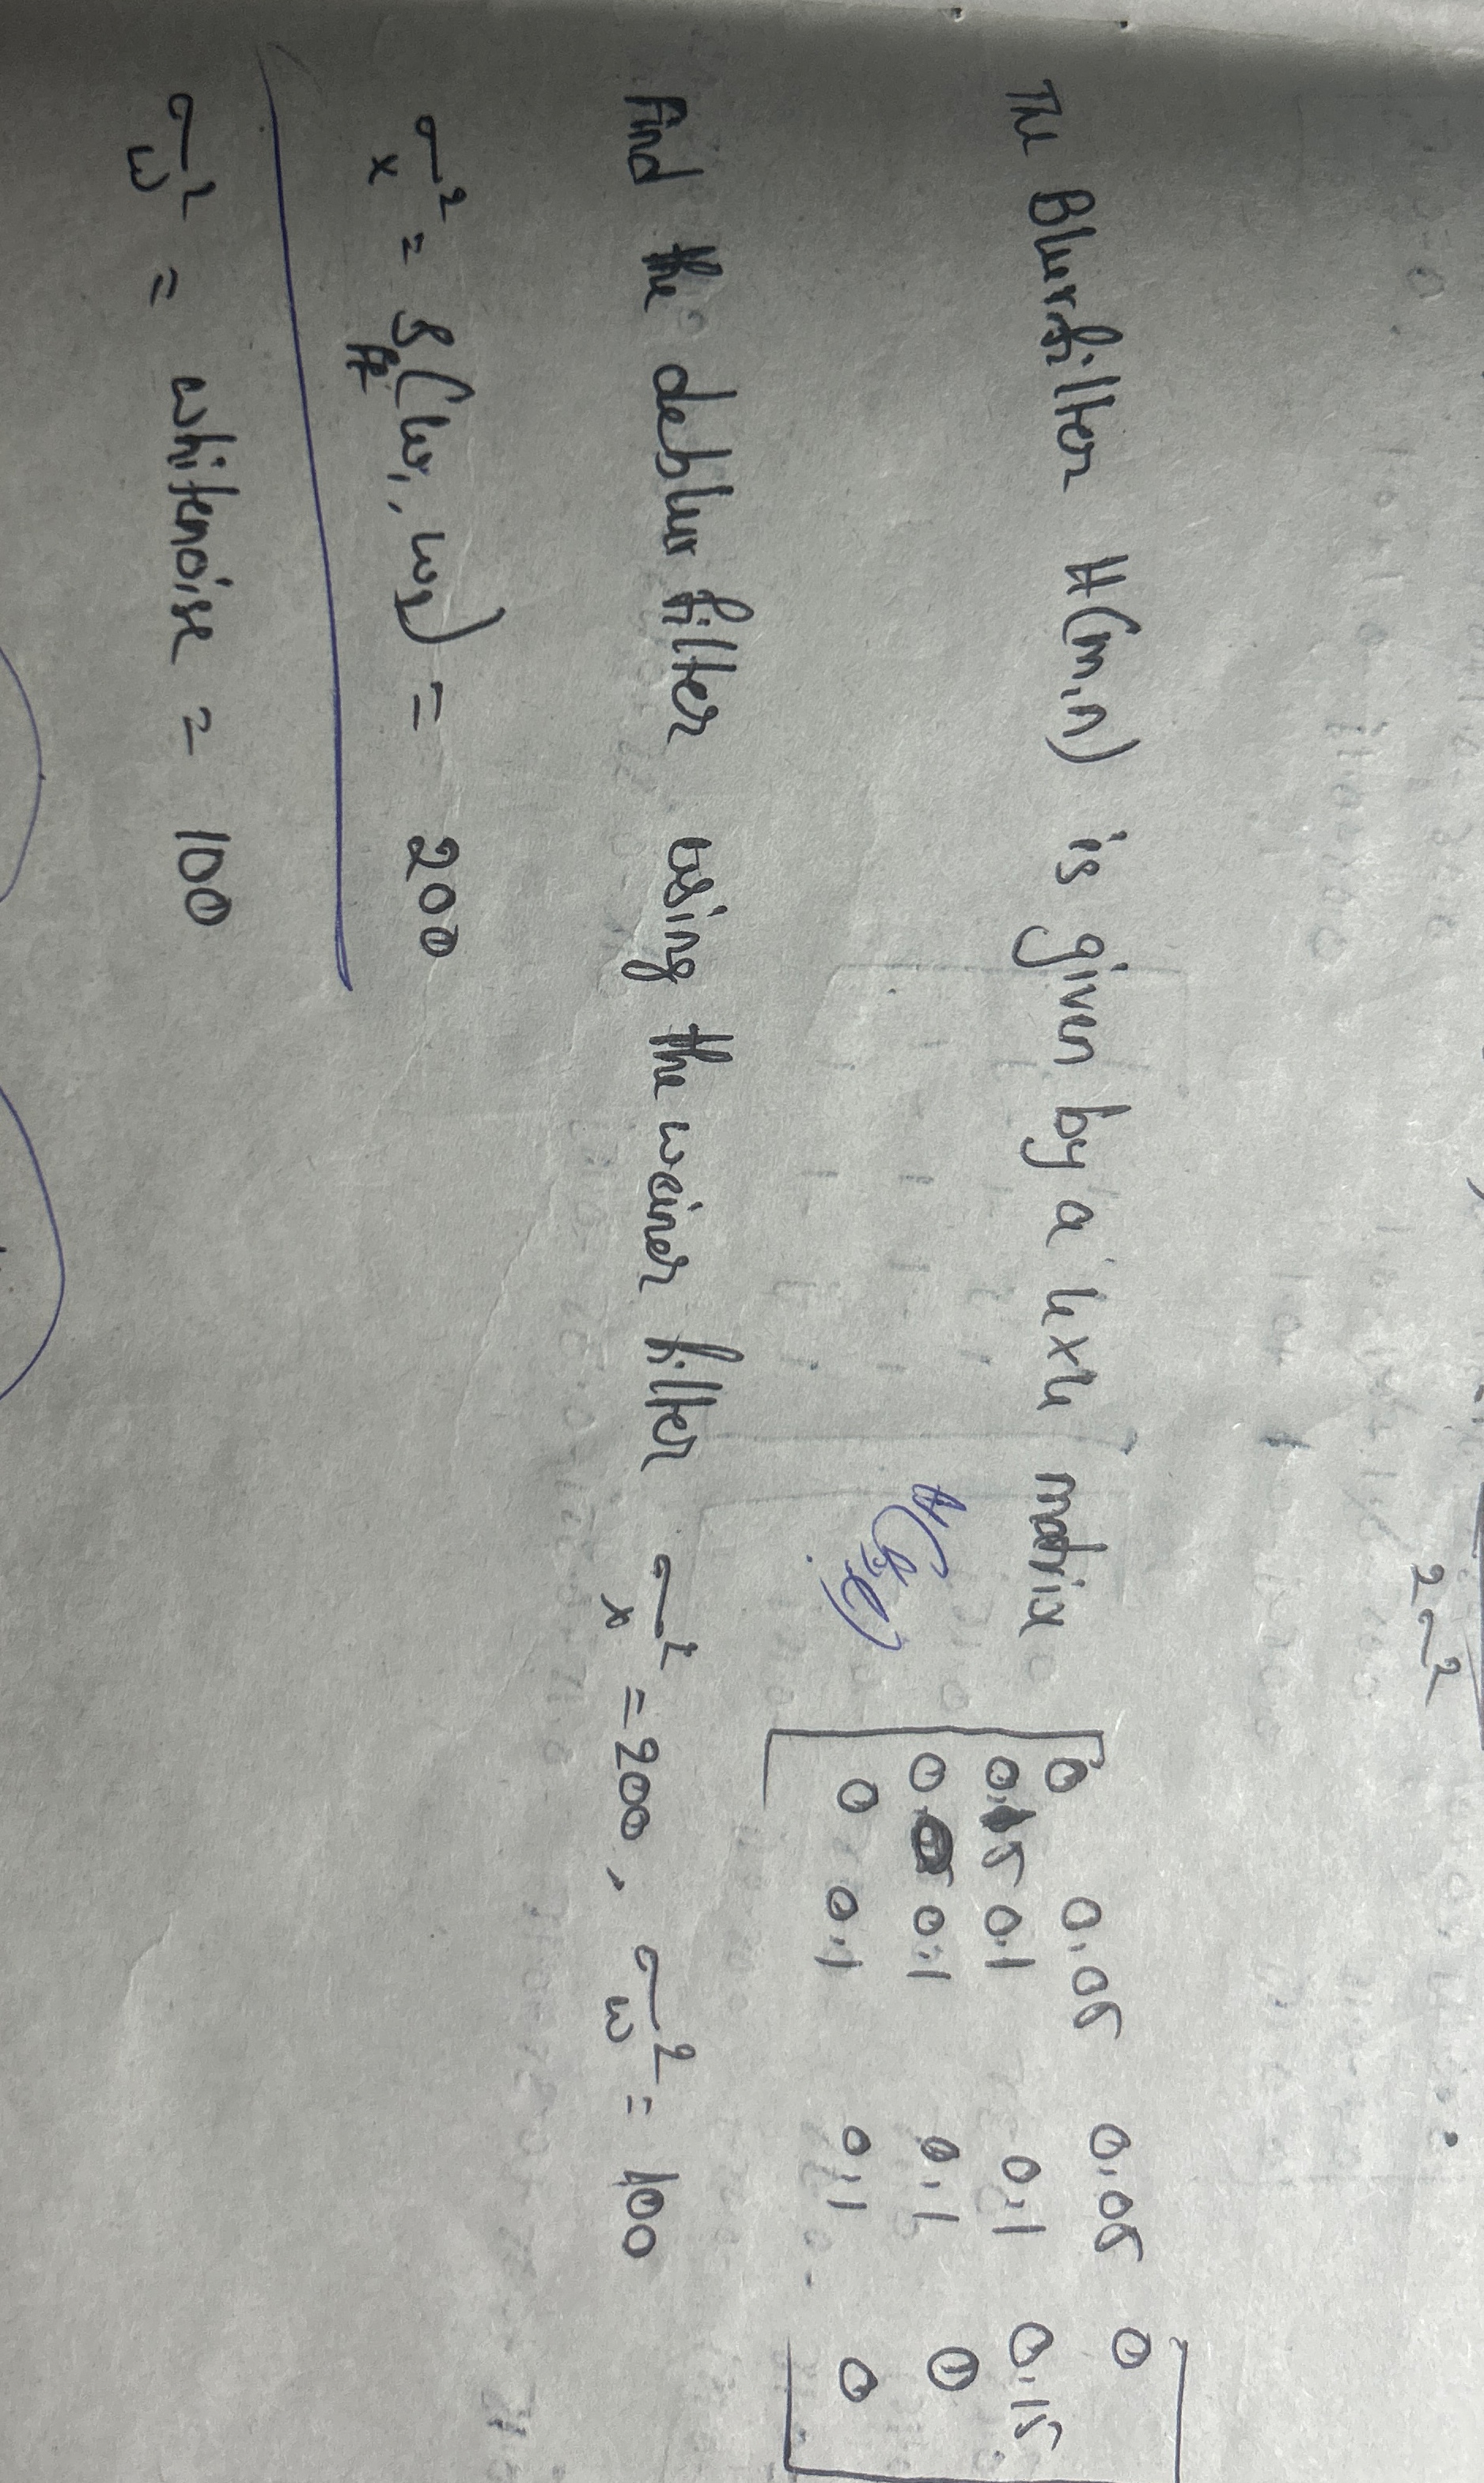 2σ²
The Blurfilter H(m,n) is given by a 4x4 matrix
0 0.05 0.05 0
0.15 0.1 0.1 0.15
0 0.1 0.1 0
0 0.1 0.1 0
Find the deblur filter using the weiner filter σx² = 200, σw² = 100
σx² = (ω₁, ω₂) = 200
σw² = whitenoise = 100